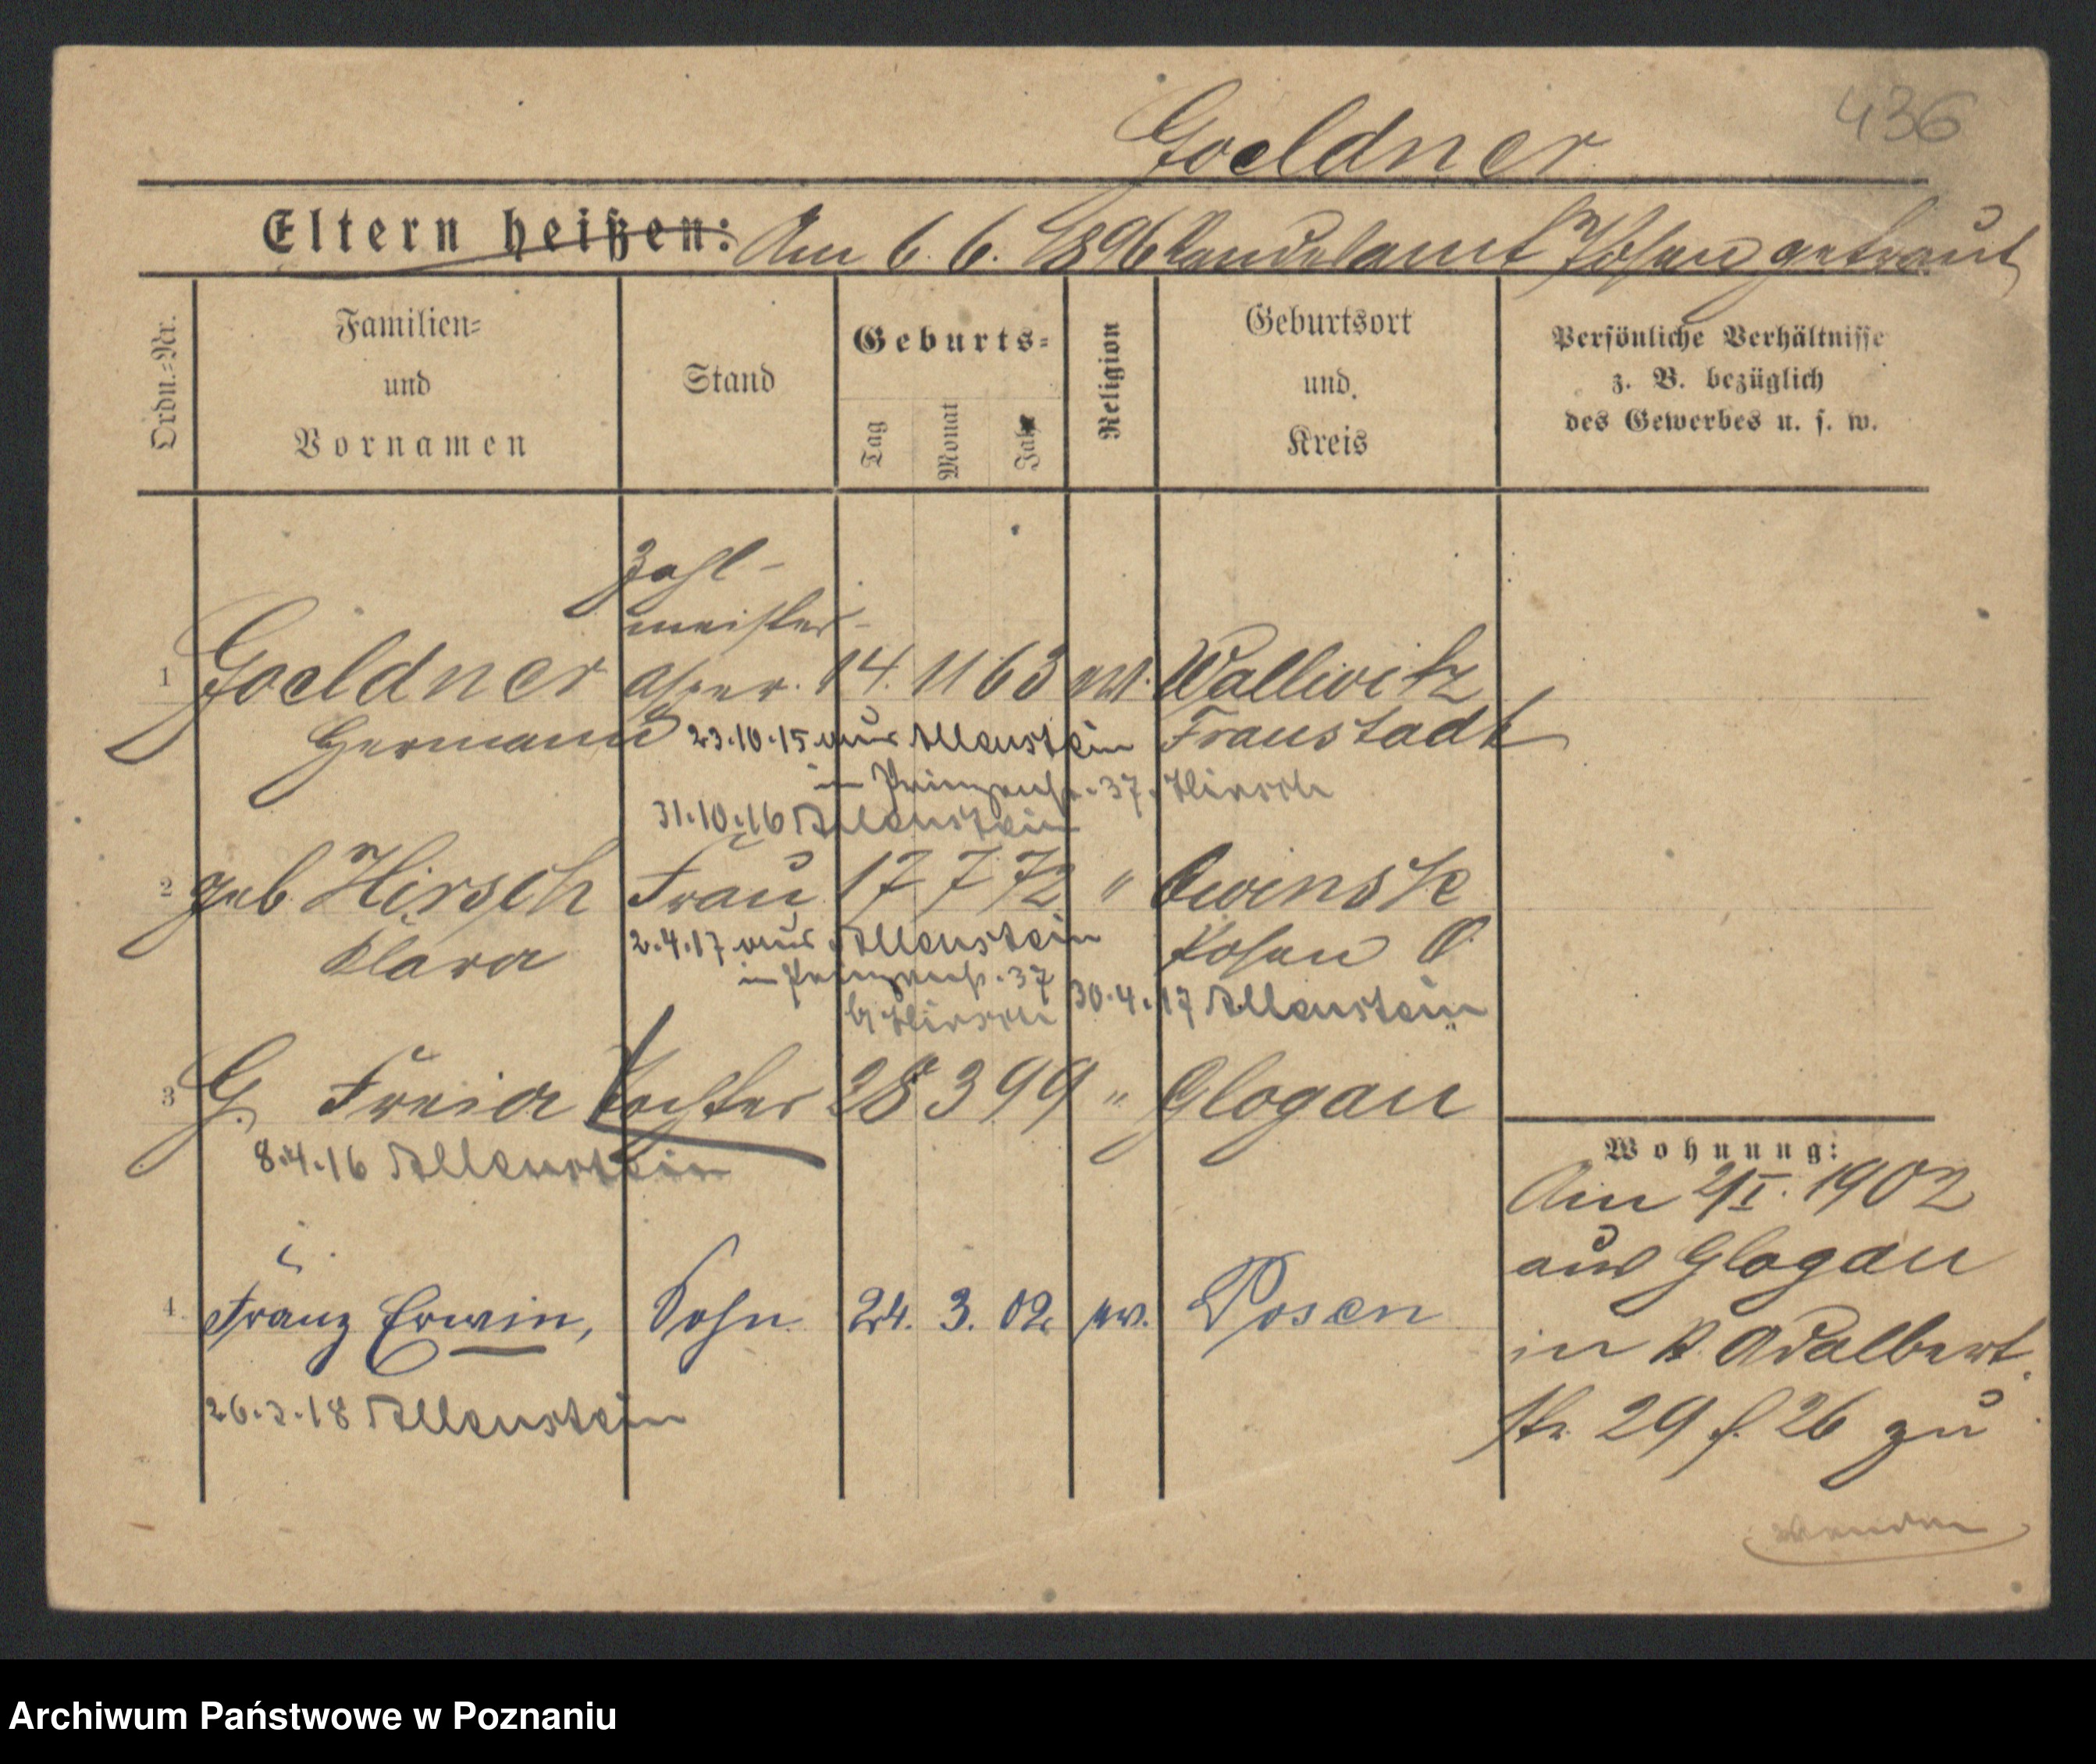 436
Goeldner
Eltern heißen: Am 6.6.1896 Standesamt Posen getraut
Ordn.=Nr.
Familien=
und
Vornamen
Stand
Geburts=
Tag
Monat
Jahr
Religion
Geburtsort
und
Kreis
Persönliche Verhältnisse
z. B. bezüglich
des Gewerbes u. s. w.
Zahl-
meister-
1 Goeldner Aspir. 14. 11 63 ev. Wallwitz
Hermann Fraustadt
23.10.15 aus Allenstein
in 37. Hirsch
31.10.16 Allenstein
2 geb Hirsch Frau 17 7 72 " Owinsk
Klara Posen O
2.4.17 aus Allenstein
in 37
b/ Hirsch
30.4.17 Allenstein
3 G. Freia Tochter 28 3 99 " Glogau
8.4.16 Allenstein
4. Franz Erwin, Sohn 24. 3. 02. ev. Posen
26.3.18 Allenstein
Wohnung:
Am 2/I. 1902
aus Glogau
in St. Adalbert
str. 29 f. 26 zu
Wenden
Archiwum Państwowe w Poznaniu